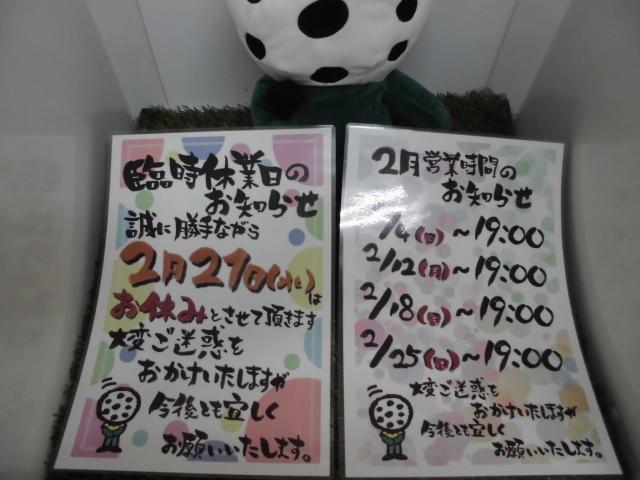 臨時休業日の
お知らせ
誠に勝手ながら
2月21日(水)は
お休みとさせて頂きます
大変ご迷惑を
おかけいたしますが
今後とも宜しく
お願いいたします。
2月営業時間の
お知らせ
2/4(日)～19:00
2/12(月)～19:00
2/18(日)～19:00
2/25(日)～19:00
大変ご迷惑を
おかけいたしますが
今後とも宜しく
お願いいたします。